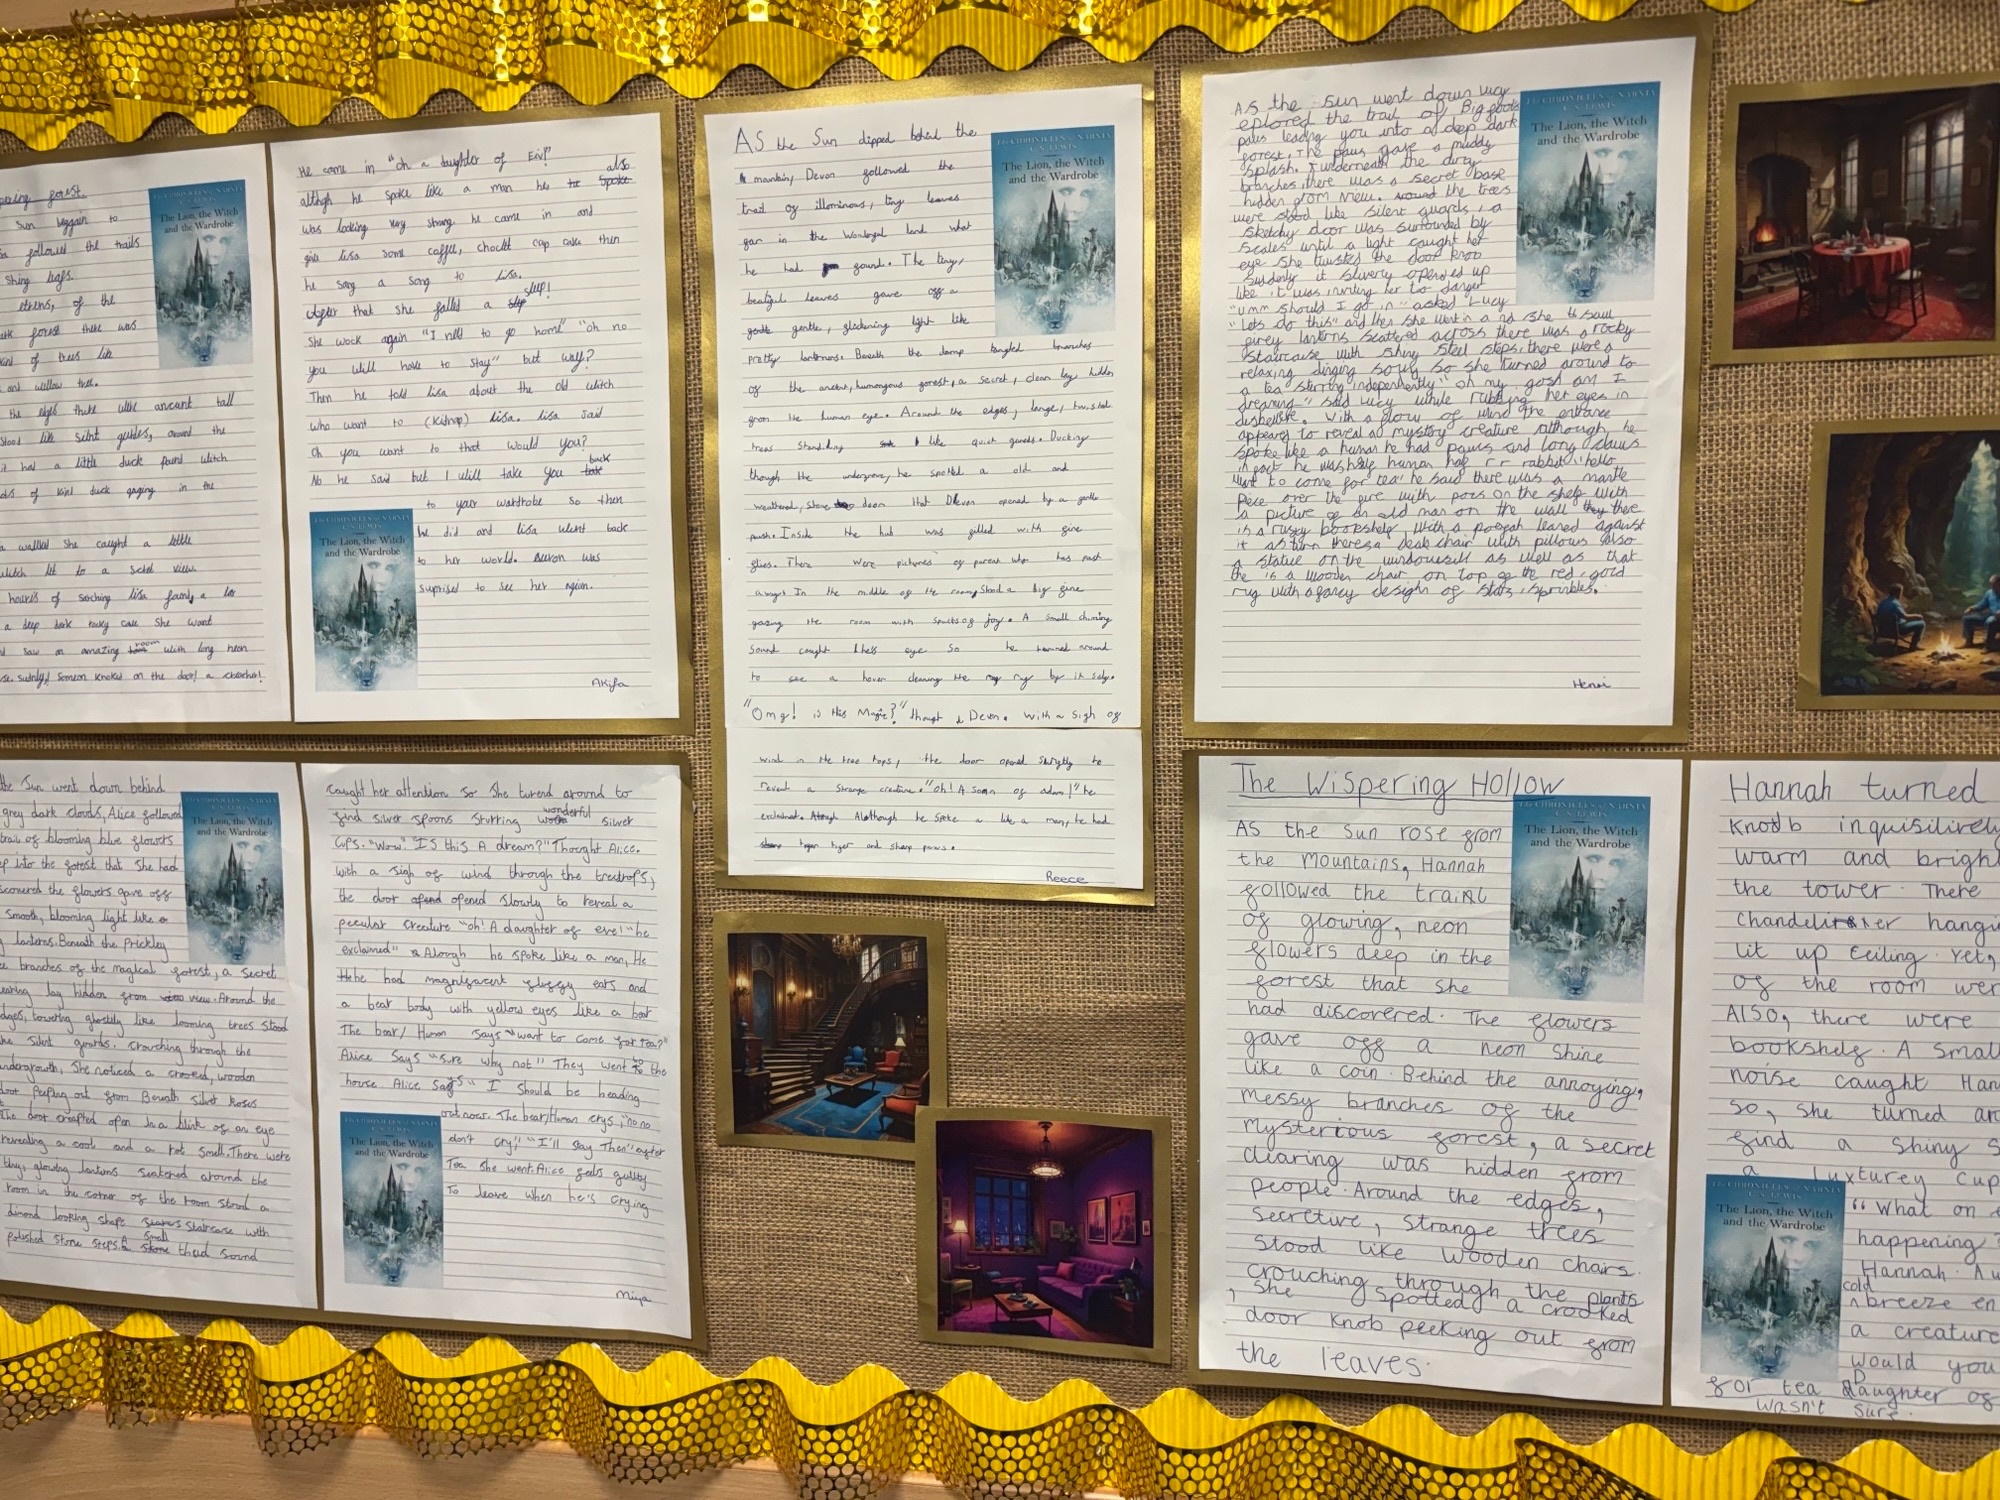 pering forest.
Sun biggain to
followed the trails
Shing leafs.
of the
forest there was
kind of trees like
and willow tree.
the edges there were ancunt tall
Stood like silent guides, around the
it had a little duck pound witch
of kind duck going in the
walked She caught a little
witch lit to a view
hours of seching lisa a
a deep dark rocky cave She want
saw an amazing room with long neon
Someon knoked on the door! a creacher!
THE CHRONICLES of NARNIA
C.S. LEWIS
The Lion, the Witch
and the Wardrobe
He came in "oh a daughter of Eiv!"
also
althgh he spoke like a man he Spoke
was looking very strang he came in and
give lisa some coffee, choclt cap cake then
he sang a song to lisa.
After that she falled a sleep!
She wock again "I need to go home" "oh no
you will have to stay" but waif?
Then he told lisa about the old witch
who want to (kidnap) lisa. lisa said
Oh you want to that would you?
back
No he said but I will take you
to your wardrobe so then
he did and lisa went back
to her world. was
suprised to see her again.
Akifa
THE CHRONICLES of NARNIA
C.S. LEWIS
The Lion, the Witch
and the Wardrobe
As the Sun dipped behind the
mountain, Devon followed the
trail of illominous, tiny leaves
far in the wonderful land what
he had found. The tiny,
beatiful leaves gave off a
gentle, glickening light like
pretty lanterns. Beneath the damp tangled branches
of the ancient, humongous forest, a secret, clean lay hidden
from the human eye. Around the edges, large, twisted
trees standing like quiet guards. Ducking
though the undergrove, he spotted a old and
weathered, stone door that Devon opened by a gentle
push. Inside the hub was filled with fire
flies. There were pictures of parent who has past
aways. In the middle of the room, stood a big fire
facing the room with of joy. A small chiming
Sound caught eye so he terned around
to see a hover cleaning the rug by it self.
"Omg! is this Magic?" thought Devon. With a sigh of
wind in the tree tops, the door opened swiftly to
reveal a strange creature. "oh! A soan of adam!" he
exclaimed. Alalthough he spoke a like a man, he had
tiger and sharp paws.
Reece
THE CHRONICLES of NARNIA
C.S. LEWIS
The Lion, the Witch
and the Wardrobe
As the sun went down lucy
eplored the trail of Big foots
paws leading you into a deep dark
forest. The paws gave a muddy
splash. underneath the dirty
branches, there was a secret base
hidden from view. around the trees
were stood like silent guards, a
sketchy door was surounded by
scales until a light caught her
eye she twisted the door knob
suddenly it sliverly opened up
like it was inviting her to danger
"umm should I go in" asked Lucy
"Lets do this" and then she went in and she saw
firey lanterns scattered across there was a rocky
staircase with shiny steel steps, there were a
relaxing dinging soung so she turned around to
a tea stirring independently" oh my gosh am I
dreaming" said Lucy while rubbing her eyes in
disbelife. with a flow of wind the entrance
appears to reveal a mystory creature although, he
spoke like a human he had pawes and long claws
infact he was half human half rabbit "hello
want to come for tea" he said there was a mantle
piece over the fire with pots on the shelf with
a picture of an old man on the wall there
is a rusty bookshelf with a leaned against
it as turn theres a chair with pillows also
a statue on the windowsill as well as that
the is a wooden chair on top of the red, gold
rug with a fancy design of Stotz, Sprinkles.
Henri
THE CHRONICLES of NARNIA
C.S. LEWIS
The Lion, the Witch
and the Wardrobe
the Sun went down behind
grey dark clouds, Alice followed
trail of blooming blue flowers
into the forest that She had
the flowers gave off
Smooth, blooming light like a
lanterns. Beneath the Prickley
branches of the magical forest, a secret
lay hidden from view. Around the
edges, towering ghostily like looming trees stood
like silent guards. crouching through the
undergrowth, She noticed a crooked, wooden
door Peeping out from Beneath silver Roses
The door craped open In a blink of an eye
revealing a cool and a hot smell. There were
tiny, glowing lanterns scatered around the
room in the corner of the room stood a
dimond looking shape Staircase with
Small
polished stone steps. A thud sound
THE CHRONICLES of NARNIA
C.S. LEWIS
The Lion, the Witch
and the Wardrobe
Caught her attention so she turend around to
wonderful
find silver spoons Sturring silver
cups. "Wow". "IS this A dream?" Thought Alice.
With a sigh of wind through the treetops,
the door opened Slowly to reveal a
peculiar creature "oh! A daughter of eve!" "he
exclaimed" Alough he spoke like a man, He
he had magnifacent fluffy ears and
a bear body with yellow eyes like a bat
The bear/ Human Says "want to come for tea?"
Alice Says "sure why not" They went to the
house. Alice Says "I should be heading
out now. The bear/Human crys, "no no
don't cry!" "I'll stay Then" after
Tea She went. Alice feels guilty
To leave when he's crying
Miya
THE CHRONICLES of NARNIA
C.S. LEWIS
The Lion, the Witch
and the Wardrobe
The Wispering Hollow
As the sun rose from
the mountains, Hannah
followed the trail
of glowing, neon
flowers deep in the
forest that she
had discovered. The flowers
gave off a neon shine
like a coin. Behind the annoying,
messy branches of the
mysterious forest, a secret
clearing was hidden from
people. Around the edges,
secretive, strange trees
stood like wooden chairs.
crouching through the plants
, She spotted a crooked
door knob peeking out from
the leaves.
THE CHRONICLES of NARNIA
C.S. LEWIS
The Lion, the Witch
and the Wardrobe
Hannah turned
Knob inquisilively
warm and bright
the tower. There
Chandelier hangi
lit up Eeiling. Yet,
of the room wer
Also, there were
bookshelf. A small
noise caught Han
So, she turned ar
find a shiny s
a luxturey cup
"What on
happening
Hannah. A
cold
breeze en
a creature
would you
for tea Daughter of
wasn't sure.
THE CHRONICLES of NARNIA
C.S. LEWIS
The Lion, the Witch
and the Wardrobe